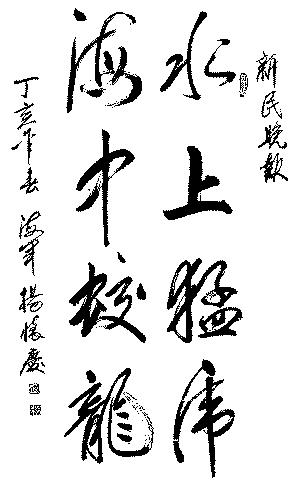 新民晚
水上猛虎
海中蛟龍
丁亥年春 海軍 楊懷慶